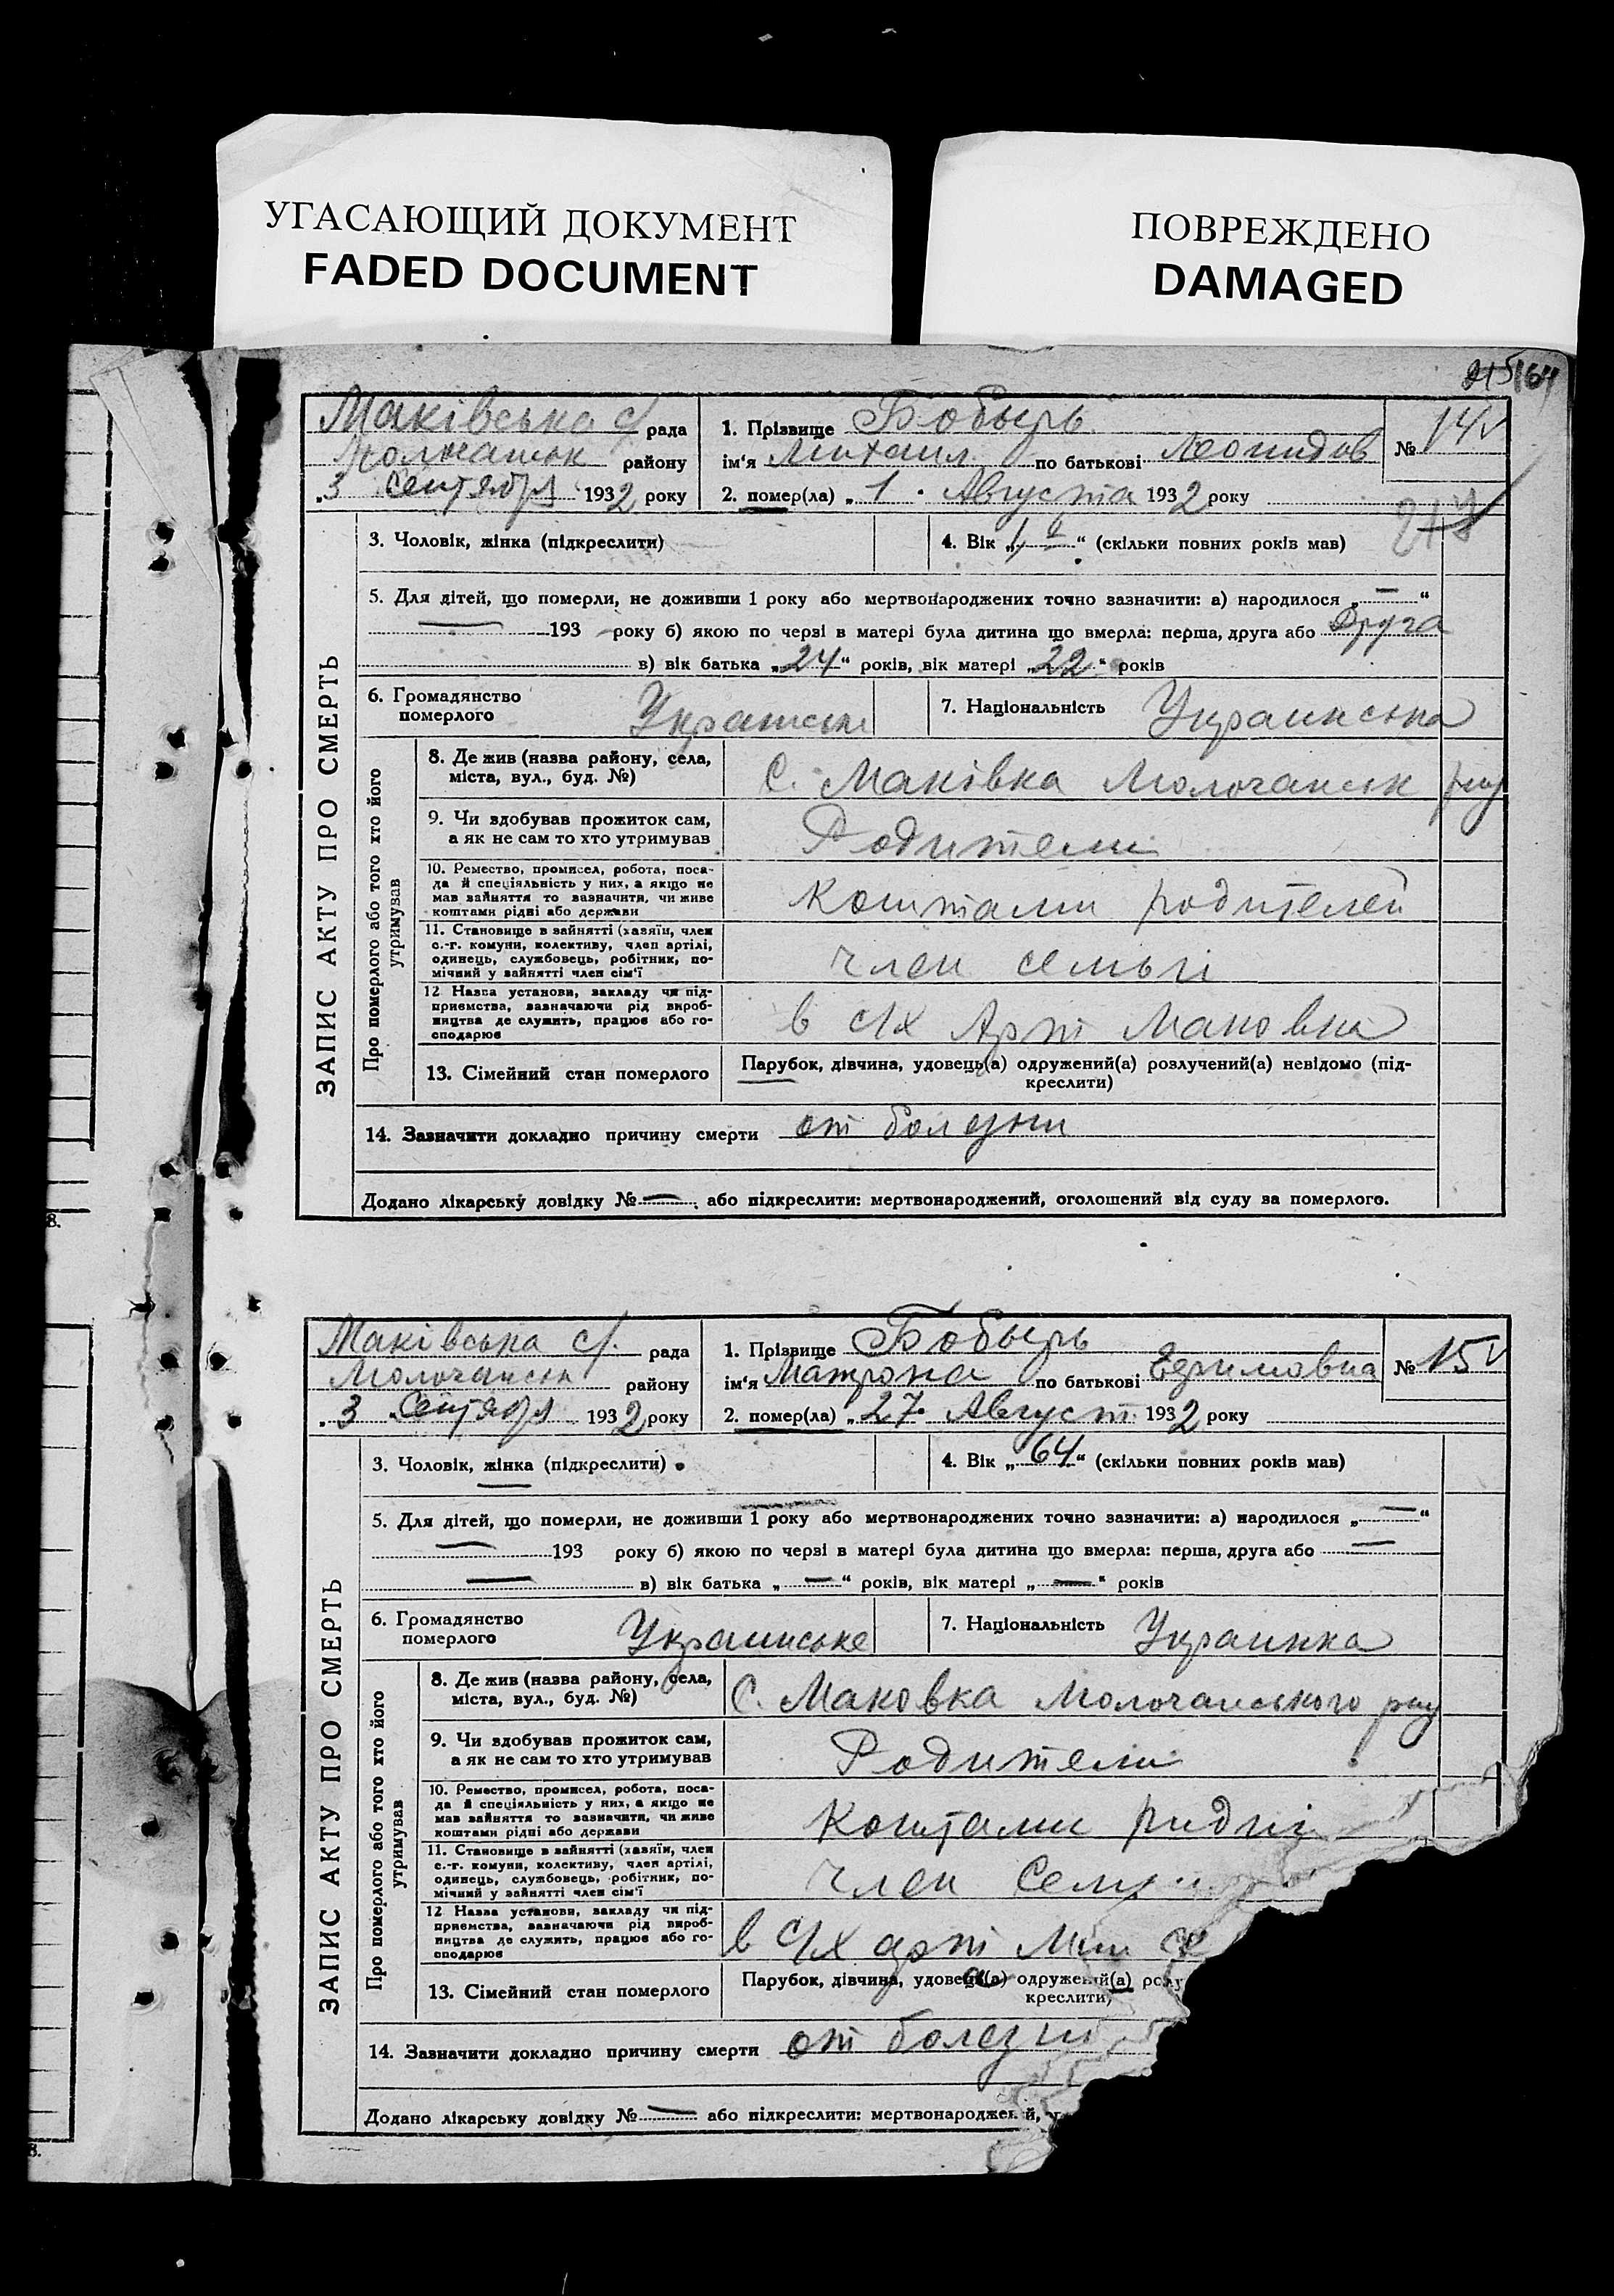 УГАСАЮЩИЙ ДОКУМЕНТ
FADED DOCUMENT
ПОВРЕЖДЕНО
DAMAGED
164
Маківська с/ рада
Молочанськ району
„3 Сентября 1932 року
1. Прізвище Бобырь
ім'я Михаил по батькові Леонидов
2. помер(ла) „1" Августа 1932 року
№ 14
ЗАПИС АКТУ ПРО СМЕРТЬ
3. Чоловік, жінка (підкреслити)
4. Вік „1" (скільки повних років мав)
5. Для дітей, що померли, не доживши 1 року або мертвонароджених точно зазначити: а) народилося „—"
— 193 року б) якою по черзі в матері була дитина що вмерла: перша, друга або Друга
в) вік батька „24" років, вік матері „22" років
6. Громадянство
померлого
7. Національність Украинська
Про померлого або того хто його
утримував
8. Де жив (назва району, села,
міста, вул., буд. №)
С. Маківка Молочанськ
9. Чи здобував прожиток сам,
а як не сам то хто утримував
Родители
10. Ремество, промисел, робота, поса-
да й спеціяльність у них, а якщо не
мав зайняття то зазначити, чи живе
коштами рідні або держави
Коштами родителей
11. Становище в зайнятті (хазяїн, член
с.-г. комуни, колективу, член артілі,
одинець, службовець, робітник, по-
мічний у зайнятті член сім'ї
член семьі
12 Назва установи, закладу чи під-
приємства, зазначаючи рід вироб-
ництва де служить, працює або го-
сподарює
в с/х Арт Маковка
13. Сімейний стан померлого
Парубок, дівчина, удовець(а) одружений(а) розлучений(а) невідомо (під-
креслити)
14. Зазначити докладно причину смерти от болезни
Додано лікарську довідку № — або підкреслити: мертвонароджений, оголошений від суду за померлого.
Маківська с/. рада
Молочанськ району
„3 Сентября 1932 року
1. Прізвище Бобырь
ім'я Матрона по батькові Ефимовна
2. помер(ла) „27" Август 1932 року
№ 15
ЗАПИС АКТУ ПРО СМЕРТЬ
3. Чоловік, жінка (підкреслити)
4. Вік „64" (скільки повних років мав)
5. Для дітей, що померли, не доживши 1 року або мертвонароджених точно зазначити: а) народилося „—"
— 193 року б) якою по черзі в матері була дитина що вмерла: перша, друга або —
— в) вік батька „—" років, вік матері „—" років
6. Громадянство
померлого
Украинське
7. Національність Украинка
Про померлого або того хто його
утримував
8. Де жив (назва району, села,
міста, вул., буд. №)
С. Маковка Молочанського
9. Чи здобував прожиток сам,
а як не сам то хто утримував
Родители
10. Ремество, промисел, робота, поса-
да й спеціяльність у них, а якщо не
мав зайняття то зазначити, чи живе
коштами рідні або держави
Коштами ридні
11. Становище в зайнятті (хазяїн, член
с.-г. комуни, колективу, член артілі,
одинець, службовець, робітник, по-
мічний у зайнятті член сім'ї
член
12 Назва установи, закладу чи під-
приємства, зазначаючи рід вироб-
ництва де служить, працює або го-
сподарює
в с/х арт
13. Сімейний стан померлого
Парубок, дівчина, удовець(а) одружений(а) роз
креслити)
14. Зазначити докладно причину смерти от болезни
Додано лікарську довідку № — або підкреслити: мертвонароджений,